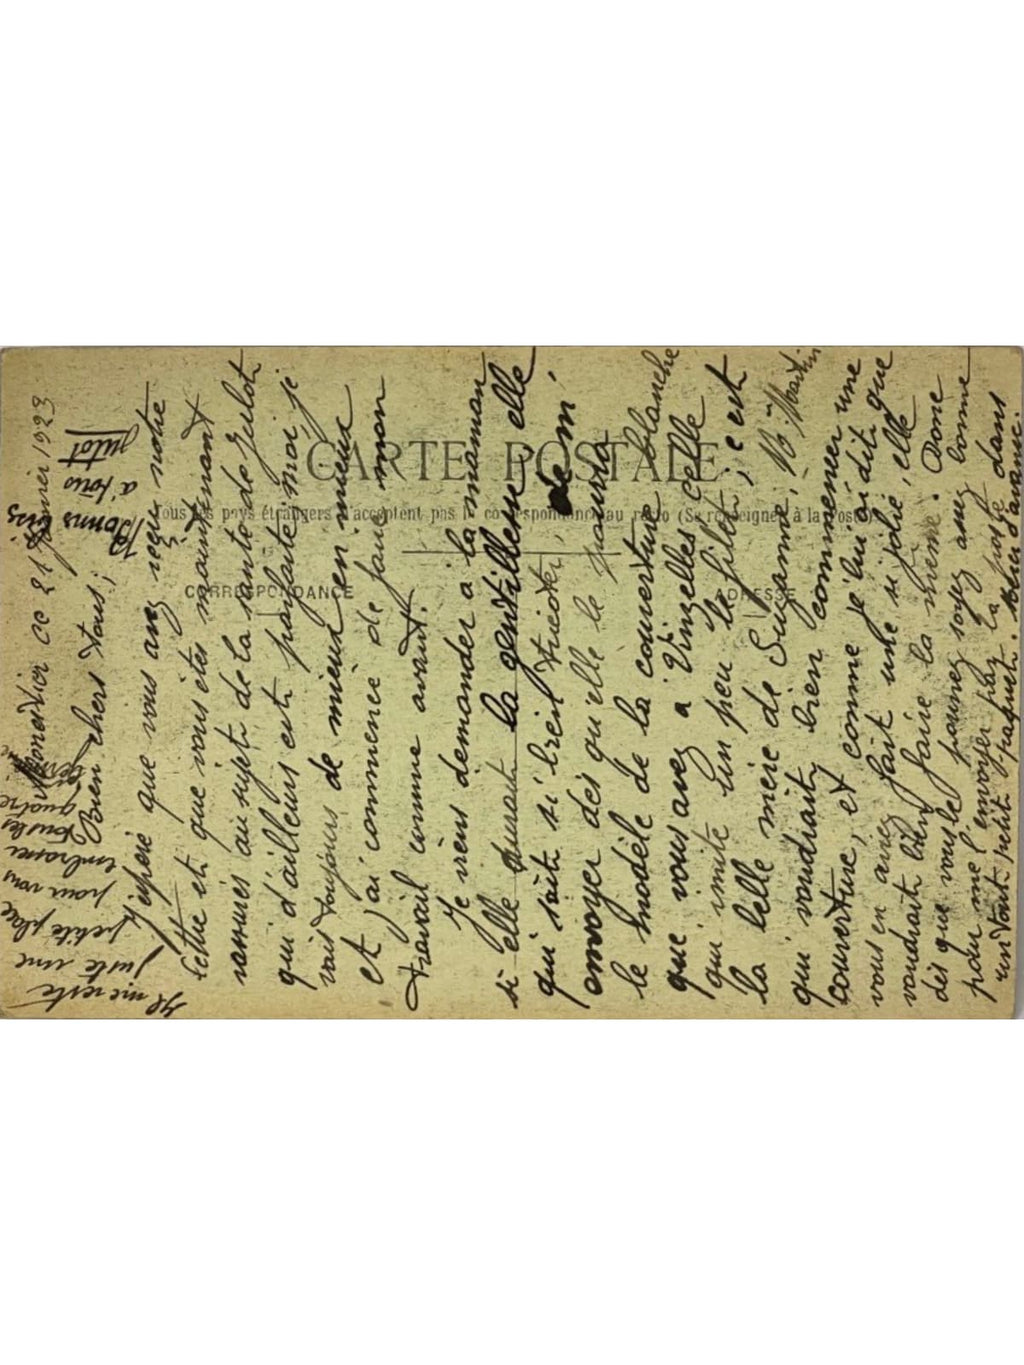 CARTE POSTALE
Tous les pays étrangers n'acceptent pas la correspondance au recto (Se renseigner à la Poste)
CORRESPONDANCE
ADRESSE
ce 21 Janvier 1923
Bien chers tous;
J'espère que vous avez reçu notre
lettre et que vous êtes maintenant
rassurés au sujet de la santé de Julot
qui d'ailleurs est parfaite moi, je
vais toujours de mieux en mieux
et j'ai commencé de faire mon
travail comme avant.
Je viens demander à la maman
si elle aurait la gentillesse, elle
qui sait si bien tricoter, de m'
envoyer dès qu'elle le pourra
le modèle de la couverture blanche
que vous avez à Vinzelles celle
qui imite un peu le filet; c'est
la belle mère de Suzanne, Mme Martin
qui voudrait bien commencer une
couverture, et comme je lui ai dit que
vous en avez fait une si jolie, elle
voudrait bien faire la même. Donc
dès que vous le pourrez soyez assez bonne
pour me l'envoyer par la poste dans
un tout petit paquet. Merci d'avance.
Il me reste
juste une
petite place
pour vous
embrasser
tous les
quatre
Bonnes bises
à tous
Julot